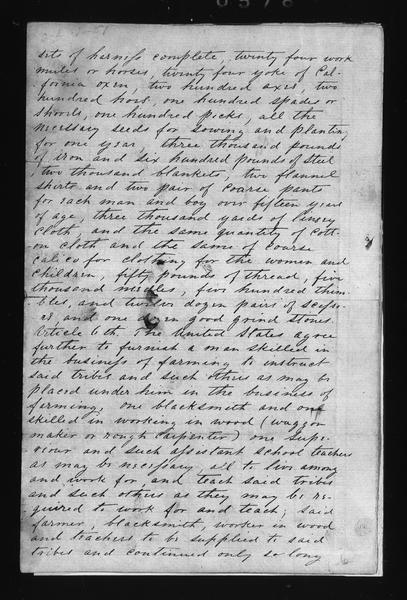 sets of harness complete, twenty four work
mules or horses, twenty four yoke of Cal-
ifornia oxen, two hundred axes, two
hundred hoes, one hundred spades or
shovels, one hundred picks, all the
necessary seeds for sowing and planting
for one year, three thousand pounds
of iron and six hundred pounds of steel
two thousand blankets, two flannel
shirts and two pair of coarse pants
for each man and boy over fifteen years
of age, three thousand yards of linsey
cloth, and the same quantity of cott-
on cloth and the same of coarse
calico for clothing for the women and
children, fifty pounds of thread, five
thousand needles, five hundred thim-
bles, and twelve dozen pairs of sciss-
ors and one dozen good grind stones.
Article 6th The United States agree
further to furnish a man skilled in
the business of farming to instruct
said tribes and such others as may be
placed under him in the business of
farming, one blacksmith and one
skilled in working in wood (waggon
maker or rough carpenter) one Supe-
riour and such assistant school teachers
as may be necessary, all to live among
and work for, and teach said tribes
and such others as they may be re-
quired to work for and teach; said
farmer, blacksmith, worker in wood
and teachers to be supplied to said
tribes and continued only so long